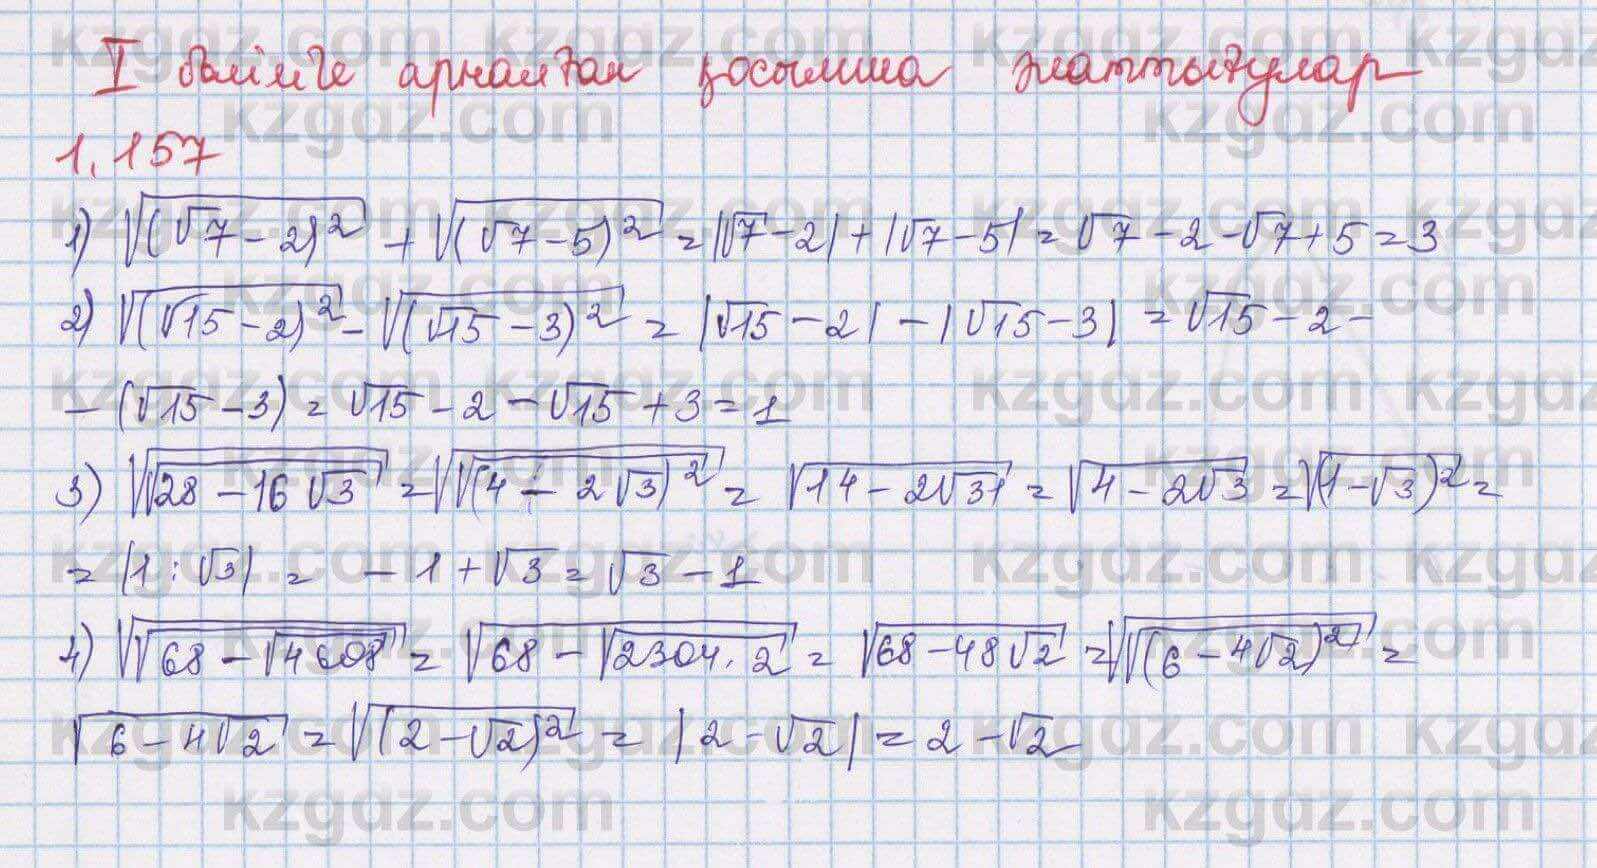 I бөлімге арналған қосымша жаттығулар
1.157
1) √(√7-2)² + √(√7-5)² = |√7-2|+|√7-5| = √7-2-√7+5=3
2) √(√15-2)² - √(√15-3)² = |√15-2|-|√15-3| = √15-2-
-(√15-3) = √15-2-√15+3=1
3) √√28-16√3 = √√(4-2√3)² = √|4-2√3| = √4-2√3 = √(1-√3)² =
= |1:√3| = -1+√3 = √3-1
4) √√68-√4608 = √68-√2304·2 = √68-48√2 = √√(6-4√2)² =
√6-4√2 = √(2-√2)² = |2-√2| = 2-√2
kzgdz.com